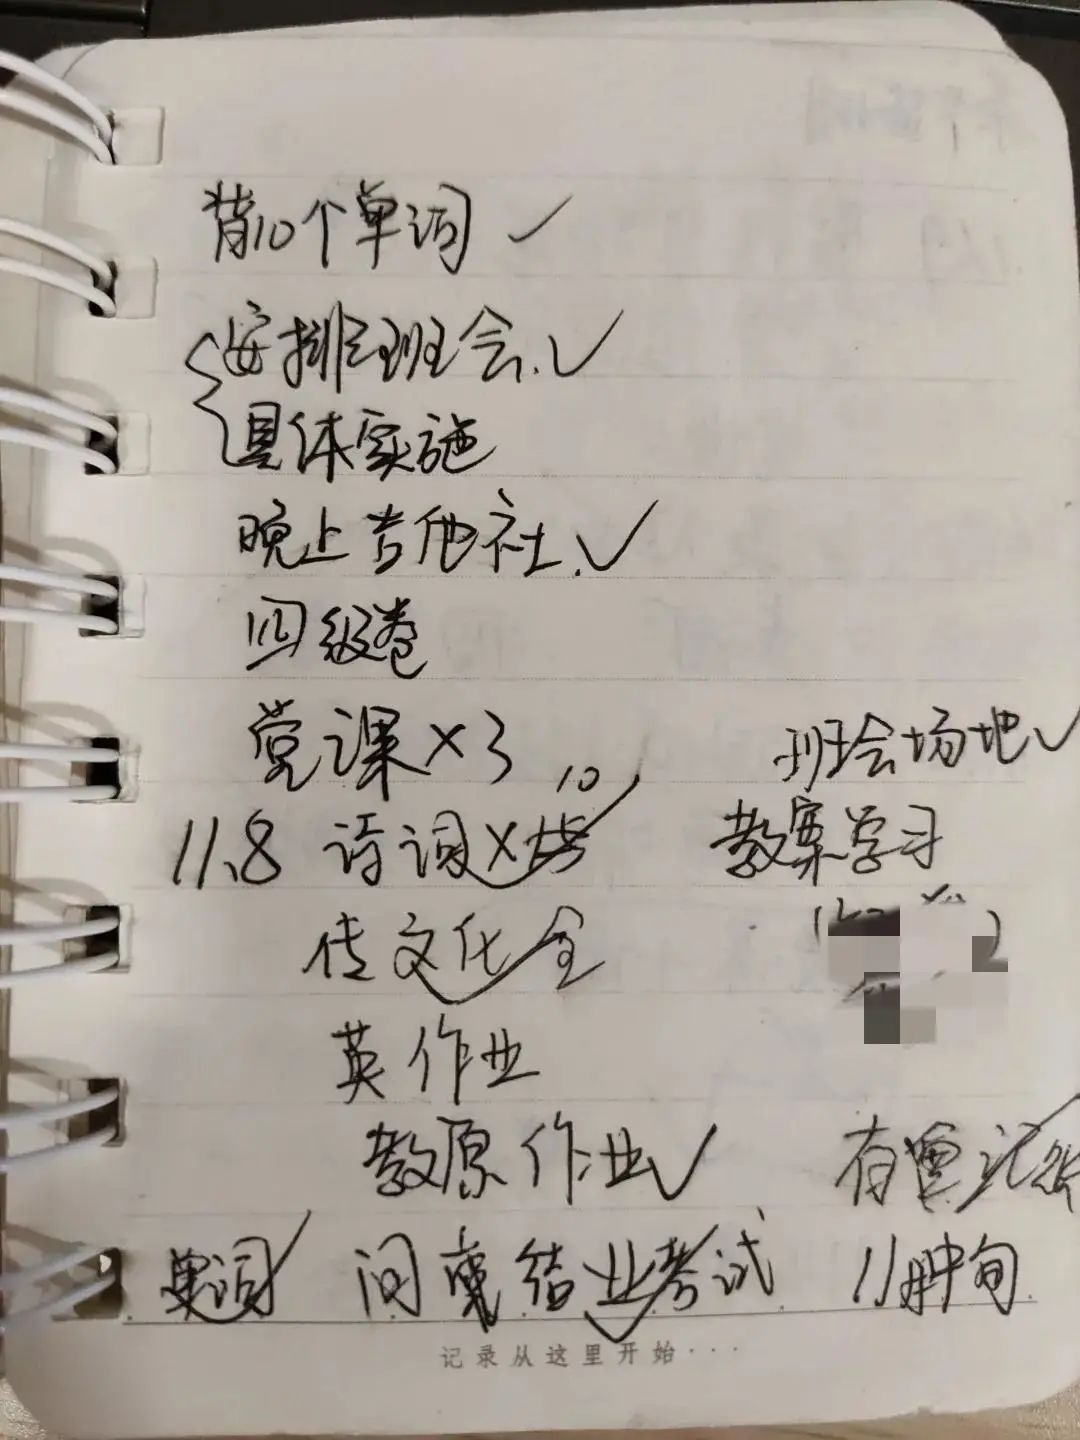 背10个单词 ✓
安排班会. ✓
具体实施
晚上吉他社. ✓
四级卷
党课×3
班会场地 ✓
11.8 诗词× 10 ✓
教案学习
传文化 全 ✓
英 作业
教原 作业 ✓
单词 ✓ 问 结业考试 ✓ 11月中旬
记录从这里开始···